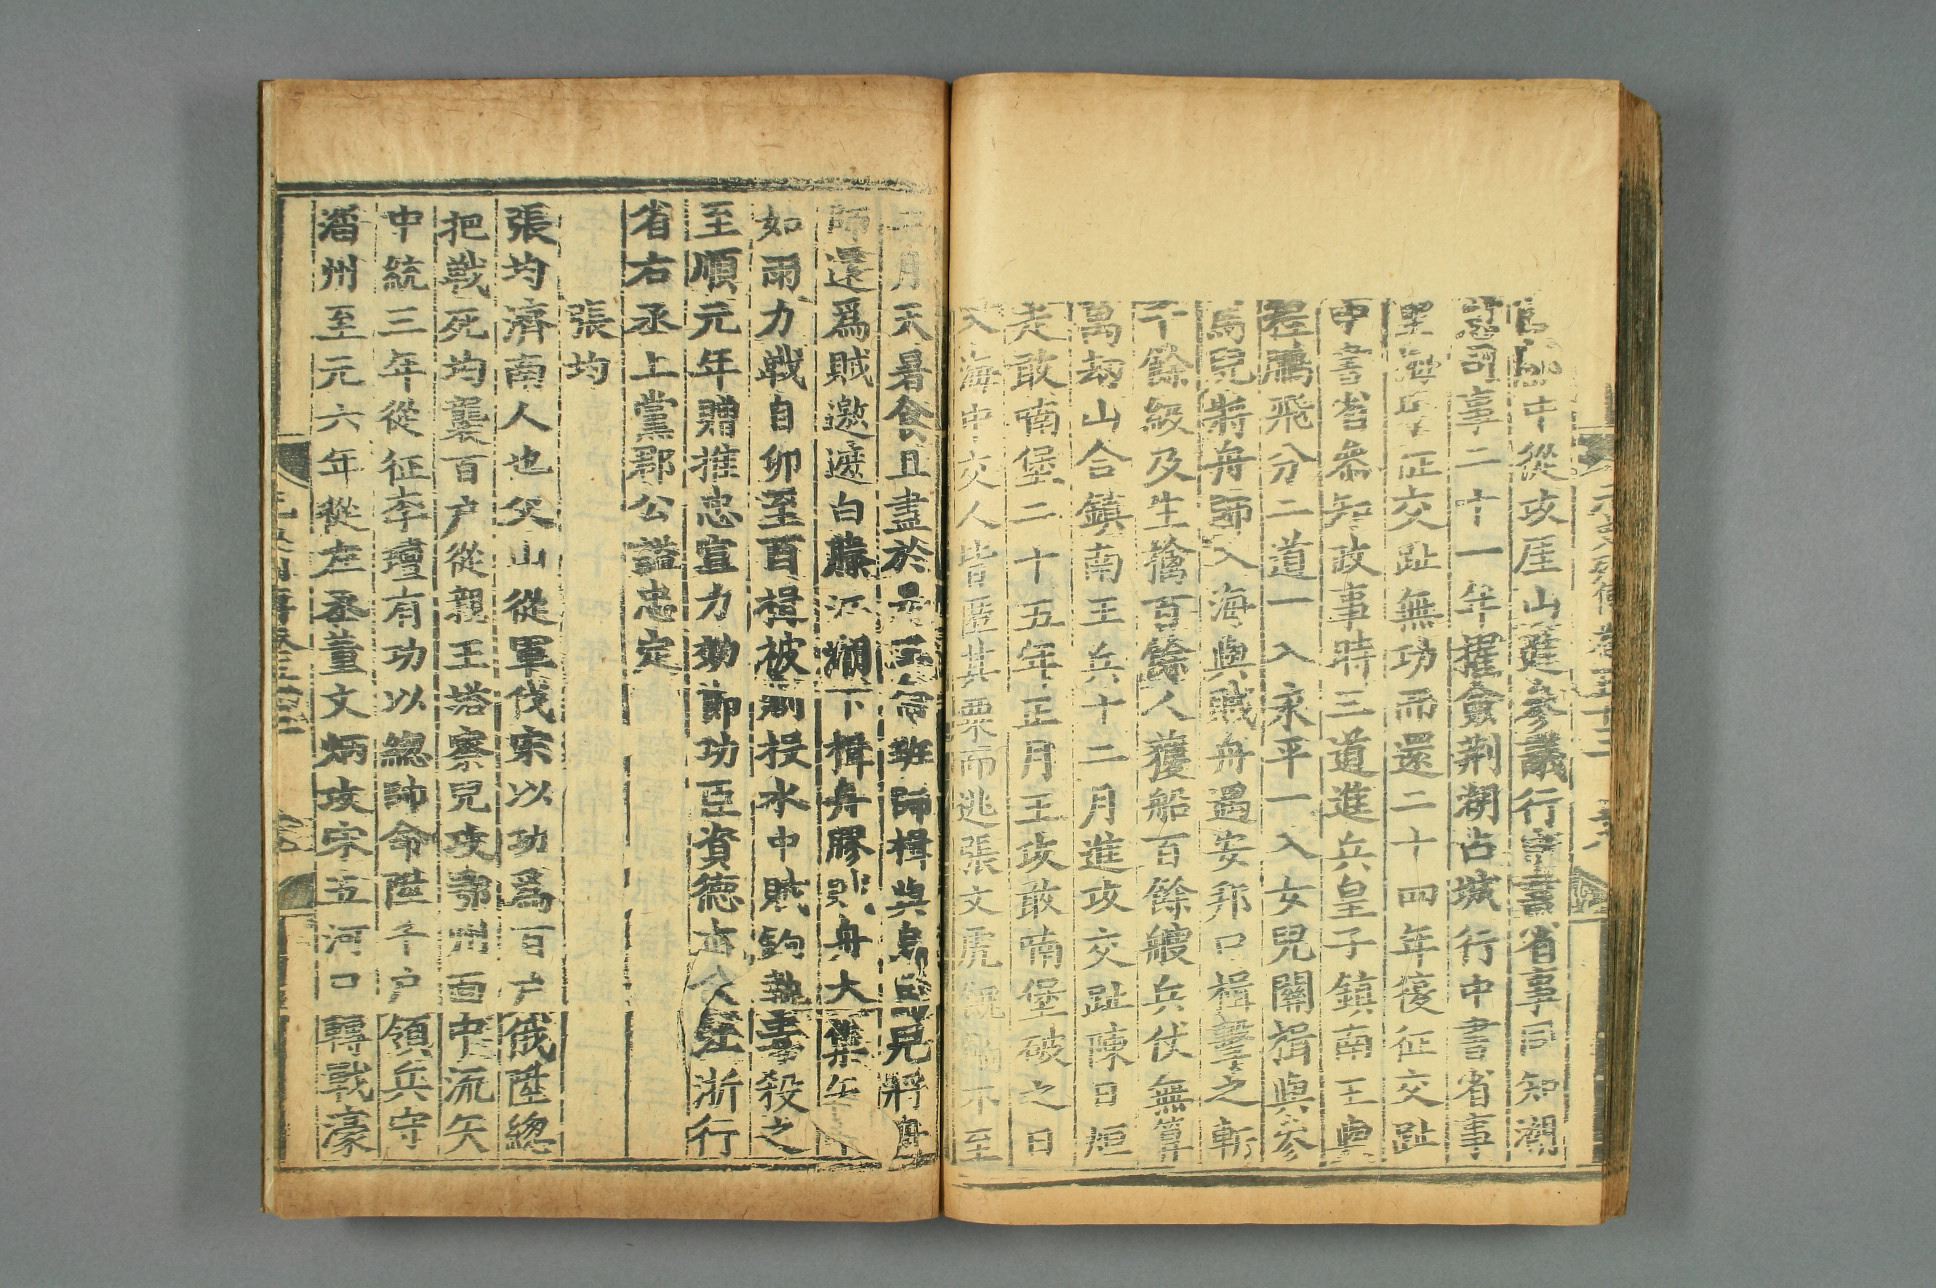 中從攻厓山進參議行中書省事同知湖
慰司事二十一年擢僉荊湖占城行中書省事
里海軍征交趾無功而還二十四年復征交趾
中書省參知政事時三道進兵皇子鎮南王與
程鵬飛分二道一入永平一入女兒關楫與參
馬兒將舟師入海與賊舟遇安邦口楫擊之斬
千餘級及生擒百餘人獲船百餘艘兵仗無算
萬劫山合鎮南王兵十二月進攻交趾陳日烜
走敢喃堡二十五年正月王攻敢喃堡破之日
入海中交人皆匿其粟而逃張文虎不至
二月天暑食且盡於是王命班師楫與烏馬兒將舟
師還爲賊邀遮白藤江潮下楫舟膠賊舟大集矢下
如雨力戰自卯至酉楫被創投水中賊鉤執毒殺之
至順元年贈推忠宣力效節功臣資德大夫江浙行
省右丞上黨郡公諡忠定
張均
張均濟南人也父山從軍伐宋以功爲百户俄陞總
把戰死均襲百户從親王塔察兒攻鄂州面中流矢
中統三年從征李璮有功以總帥命陞千户領兵守
淄州至元六年從左丞董文炳攻宋五河口轉戰濠